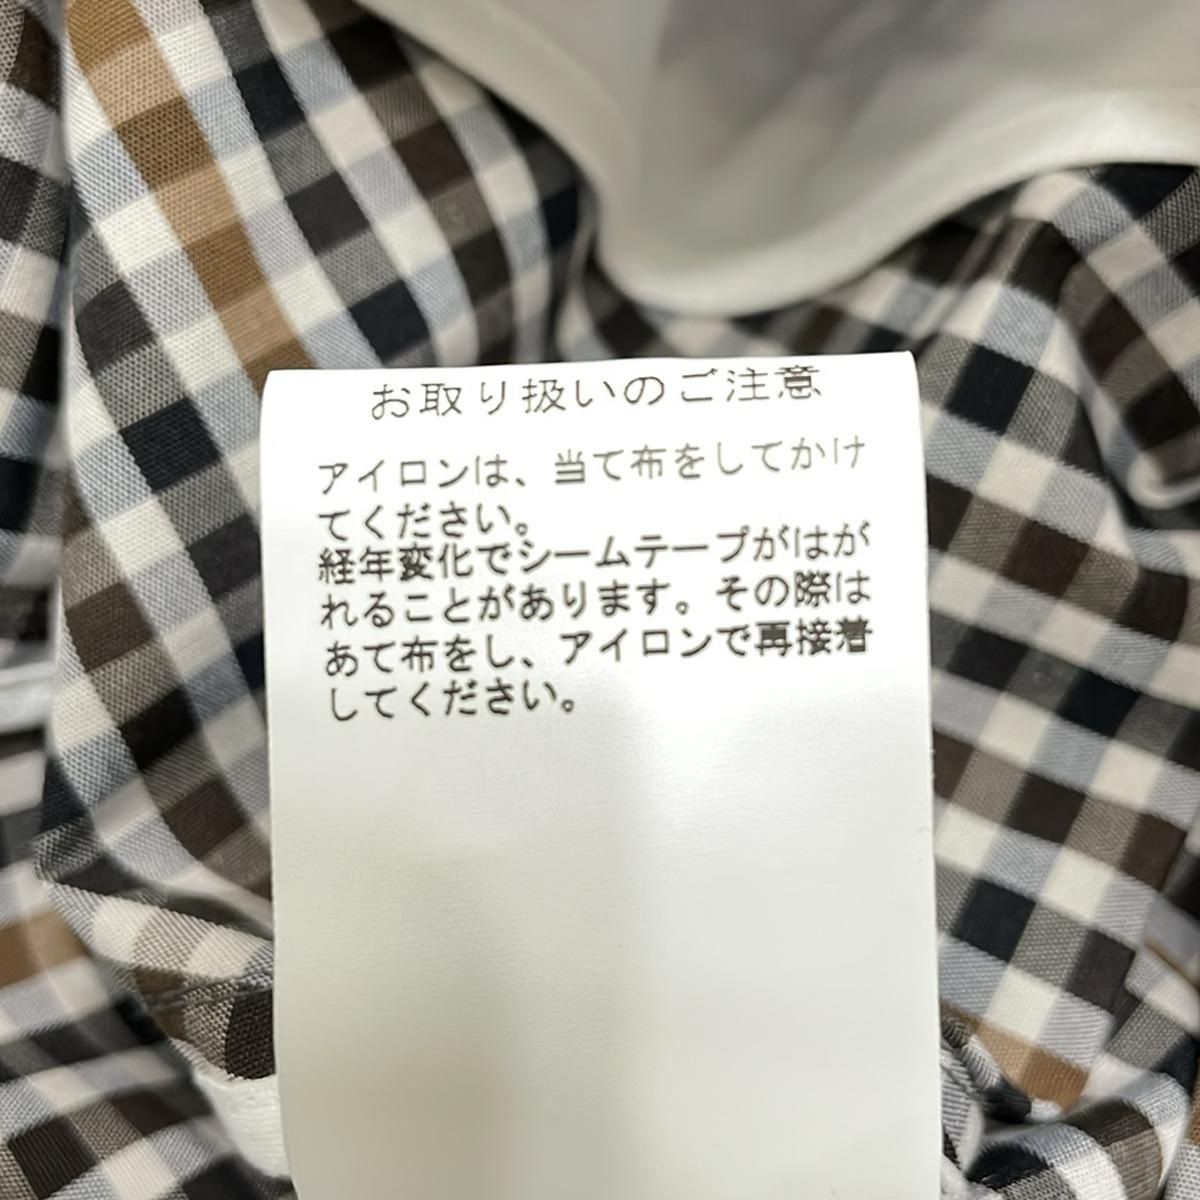 お取り扱いのご注意
アイロンは、当て布をしてかけ
てください。
経年変化でシームテープがはが
れることがあります。その際は
あて布をし、アイロンで再接着
してください。